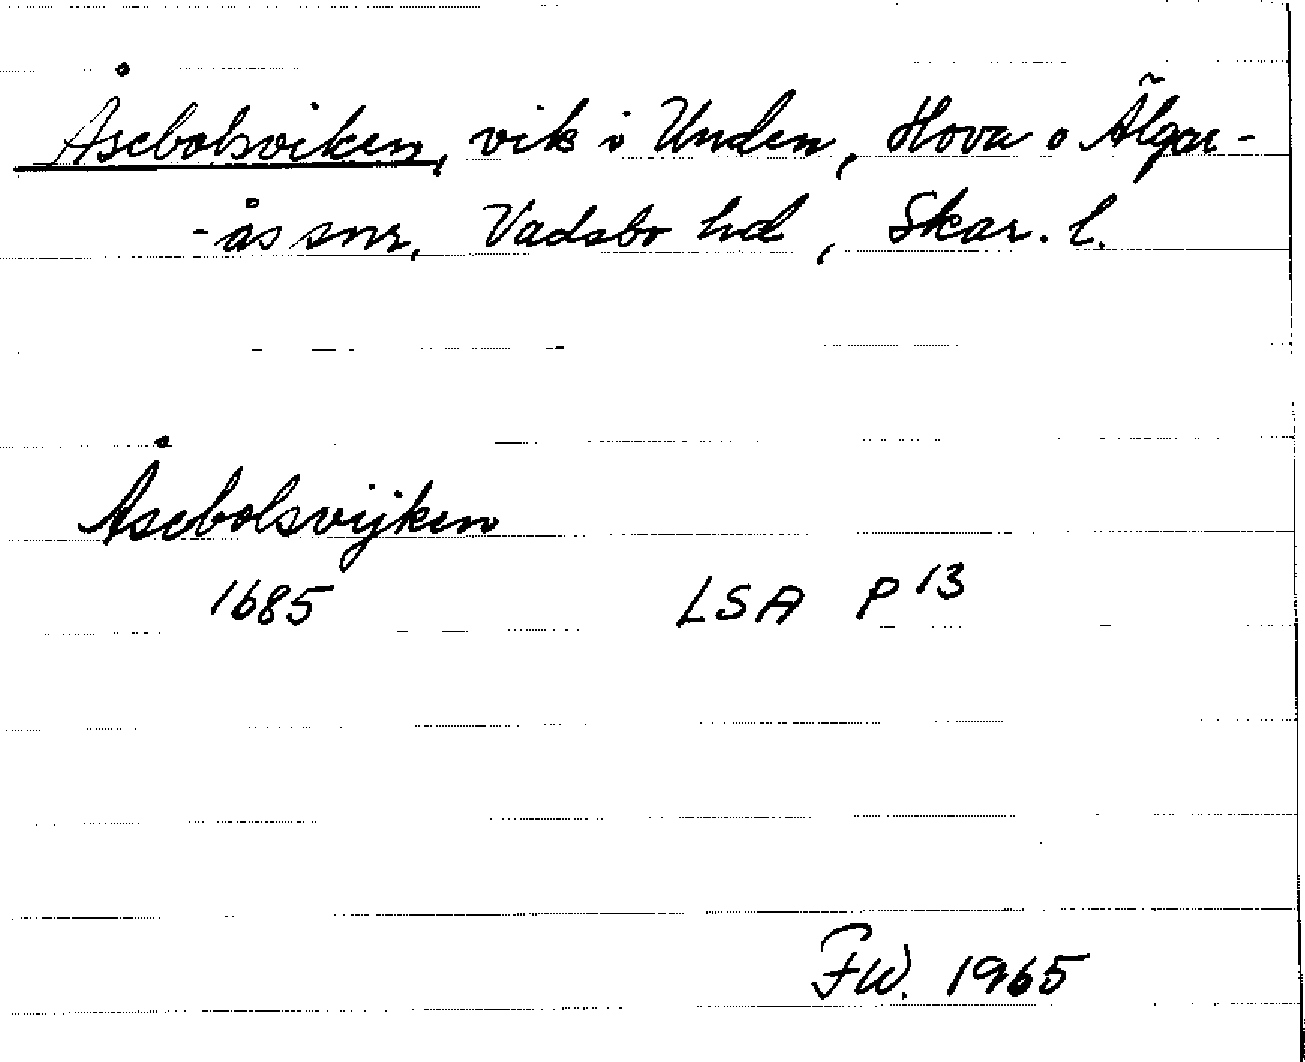 Åsebolsviken, vik i Unden, Hova o Älgar-
-ås snr, Vadsbo hd, Skar. l.
Åsebolsvijken
1685 LSA P 13
FW. 1965